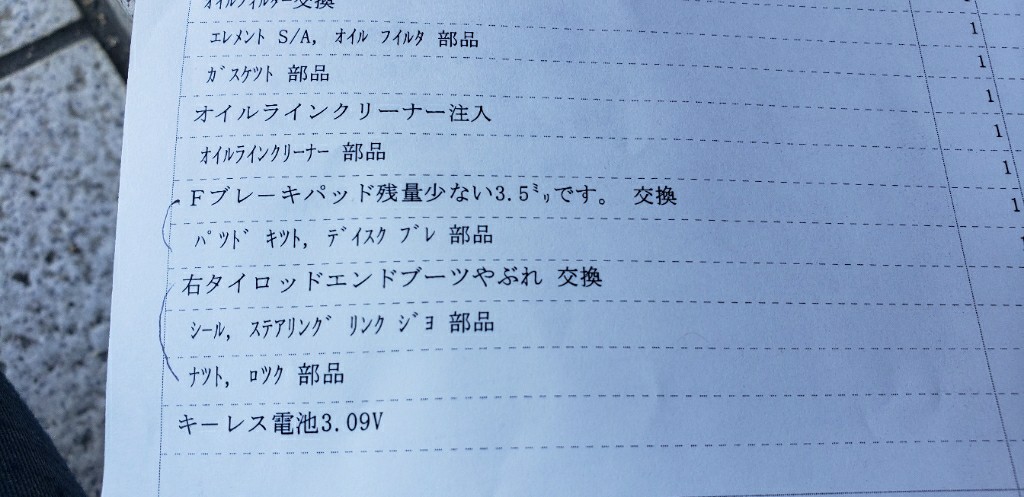 オイルフィルター交換
ｴﾚﾒﾝﾄ S/A, ｵｲﾙ ﾌｲﾙﾀ 部品 1
ｶﾞｽｹﾂﾄ 部品 1
オイルラインクリーナー注入 1
ｵｲﾙﾗｲﾝｸﾘｰﾅｰ 部品 1
Ｆブレーキパッド残量少ない3.5㍉です。 交換 1
ﾊﾟﾂﾄﾞ ｷﾂﾄ, ﾃﾞｲｽｸ ﾌﾞﾚ 部品 1
右タイロッドエンドブーツやぶれ 交換
ｼｰﾙ, ｽﾃｱﾘﾝｸﾞ ﾘﾝｸ ｼﾞﾖ 部品
ﾅﾂﾄ, ﾛﾂｸ 部品
キーレス電池3.09V